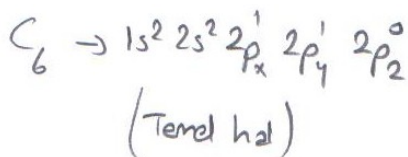 C₆ → 1s² 2s² 2pₓ¹ 2pᵧ¹ 2p_z⁰
(Temel hal)